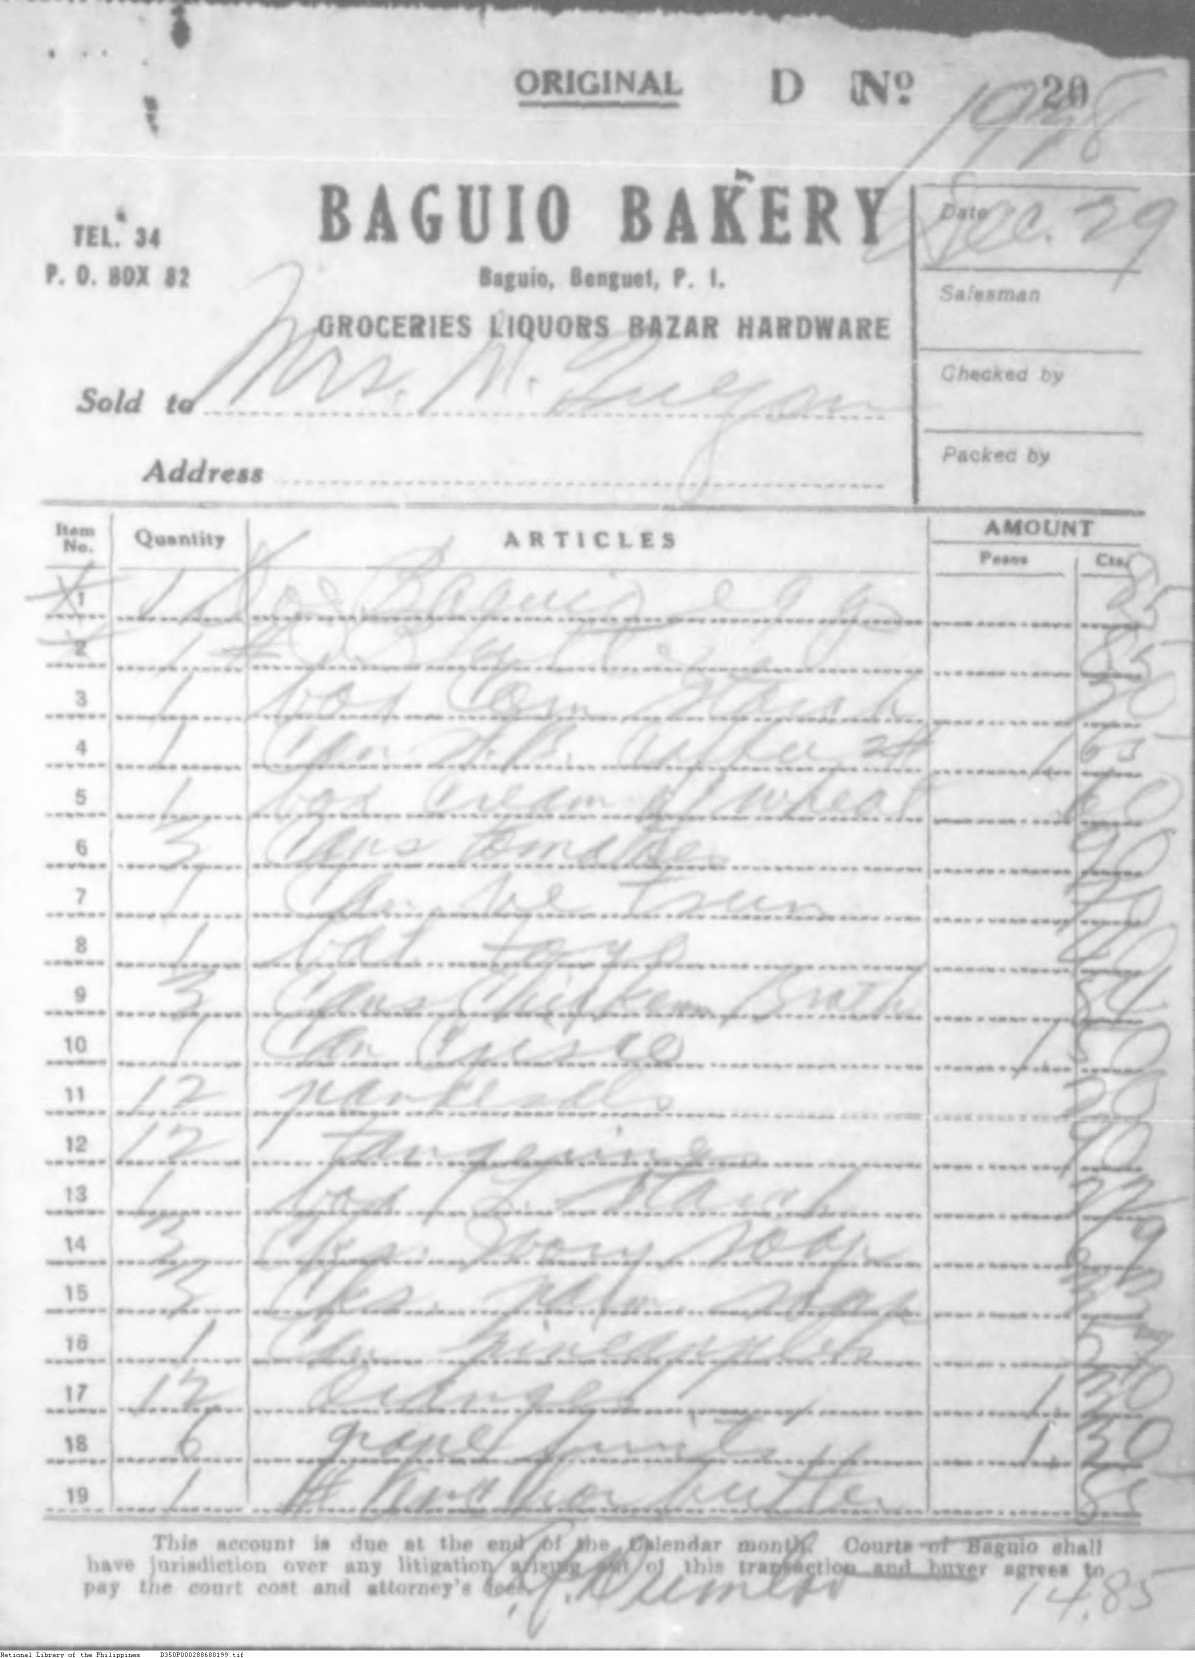 ORIGINAL D Nº 20
1938
BAGUIO BAKERY
TEL. 34
P. O. BOX 82
Baguio, Benguet, P. I.
GROCERIES LIQUORS BAZAR HARDWARE
Date Dec. 29
Salesman
Checked by
Packed by
Sold to Mrs. M.
Address
Item No. Quantity ARTICLES AMOUNT
Pesos Cts.
1 1 Doz Baguio egg 85
2 1 # 85
3 1 box Corn Starch 30
4 1 Can Coffee 2# 1 65
5 1 box Cream of wheat 60
6 3 Cans tomatoes 90
7 1 Can 70
8 1 toys 40
9 3 Cans Chicken Broth 84
10 1 Can Crisco 1 50
11 12 pandesals 20
12 12 tangerines 90
13 1 box L. Starch 22
14 3 Cks. Ivory soap 79
15 3 Cks. Palm. soap 33
16 1 Can pineapples
17 12 Oranges 1. 30
18 6 grape fruits 1. 30
19 1 # Anchor butter 85
This account is due at the end of the Calendar month. Courts of Baguio shall
have jurisdiction over any litigation arising out of this transaction and buyer agrees to
pay the court cost and attorney's fees.
14.85
National Library of the Philippines D350P000288680199.tif